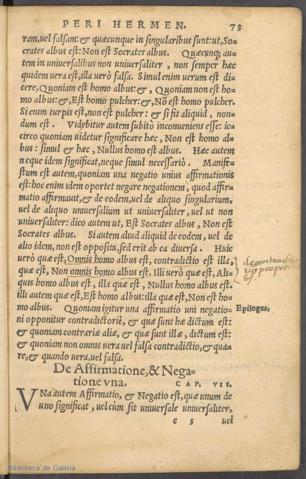 PERI HERMEN. 73
ram, uel falsam: & quæcunque in singularibus sunt: ut, So-
crates albus est: Non est Socrates albus. Quæcunq; au-
tem in uniuersalibus non uniuersaliter, non semper hæc
quidem uera est, illa uerò falsa. Simul enim uerum est di-
cere, Quoniam est homo albus: &, Quoniam non est ho-
mo albus: &, Est homo pulcher: &, Nō est homo pulcher.
Si enim turpis est, non est pulcher: & si fit aliquid, non-
dum est. Videbitur autem subitò inconueniens esse: id-
circo quoniam uidetur significare hæc, Non est homo al-
bus: simul & hæc, Nullus homo est albus. Hæc autem
neque idem significat, neque simul necessariò. Manife-
stum est autem, quoniam una negatio unius affirmationis
est: hoc enim idem oportet negare negationem, quod affir-
matio affirmauit, & de eodem, uel de aliquo singularium,
uel de aliquo uniuersalium ut uniuersaliter, uel ut non
uniuersaliter: dico autem ut, Est Socrates albus, Non est
Socrates albus. Si autem aliud aliquid de eodem, uel de
alio idem, non est opposita, sed erit ab ea diuersa. Huic
uerò quæ est, Omnis homo albus est, contradictio est illa,
quæ est, Non omnis homo albus est. Illi uerò quæ est, Ali-
quis homo albus est, illa quæ est, Nullus homo albus est.
illi autem quæ est, Est homo albus: illa quæ est, Non est ho-
mo albus. Quoniam igitur una affirmatio uni negatio-
ni opponitur contradictoriè, & quæ sunt hæ dictum est:
& quoniam contrariæ aliæ, & quæ sunt illæ, dictum est:
& quoniam non omnis uera uel falsa contradictio, & qua-
re, & quando uera, uel falsa.
Epilogus.
De Affirmatione, & Nega-
tione vna. CAP. VII.
VNa autem Affirmatio, & Negatio est, quæ unum de
uno significat, uel cùm sit uniuersale uniuersaliter,
c 5 uel
Biblioteca de Galicia